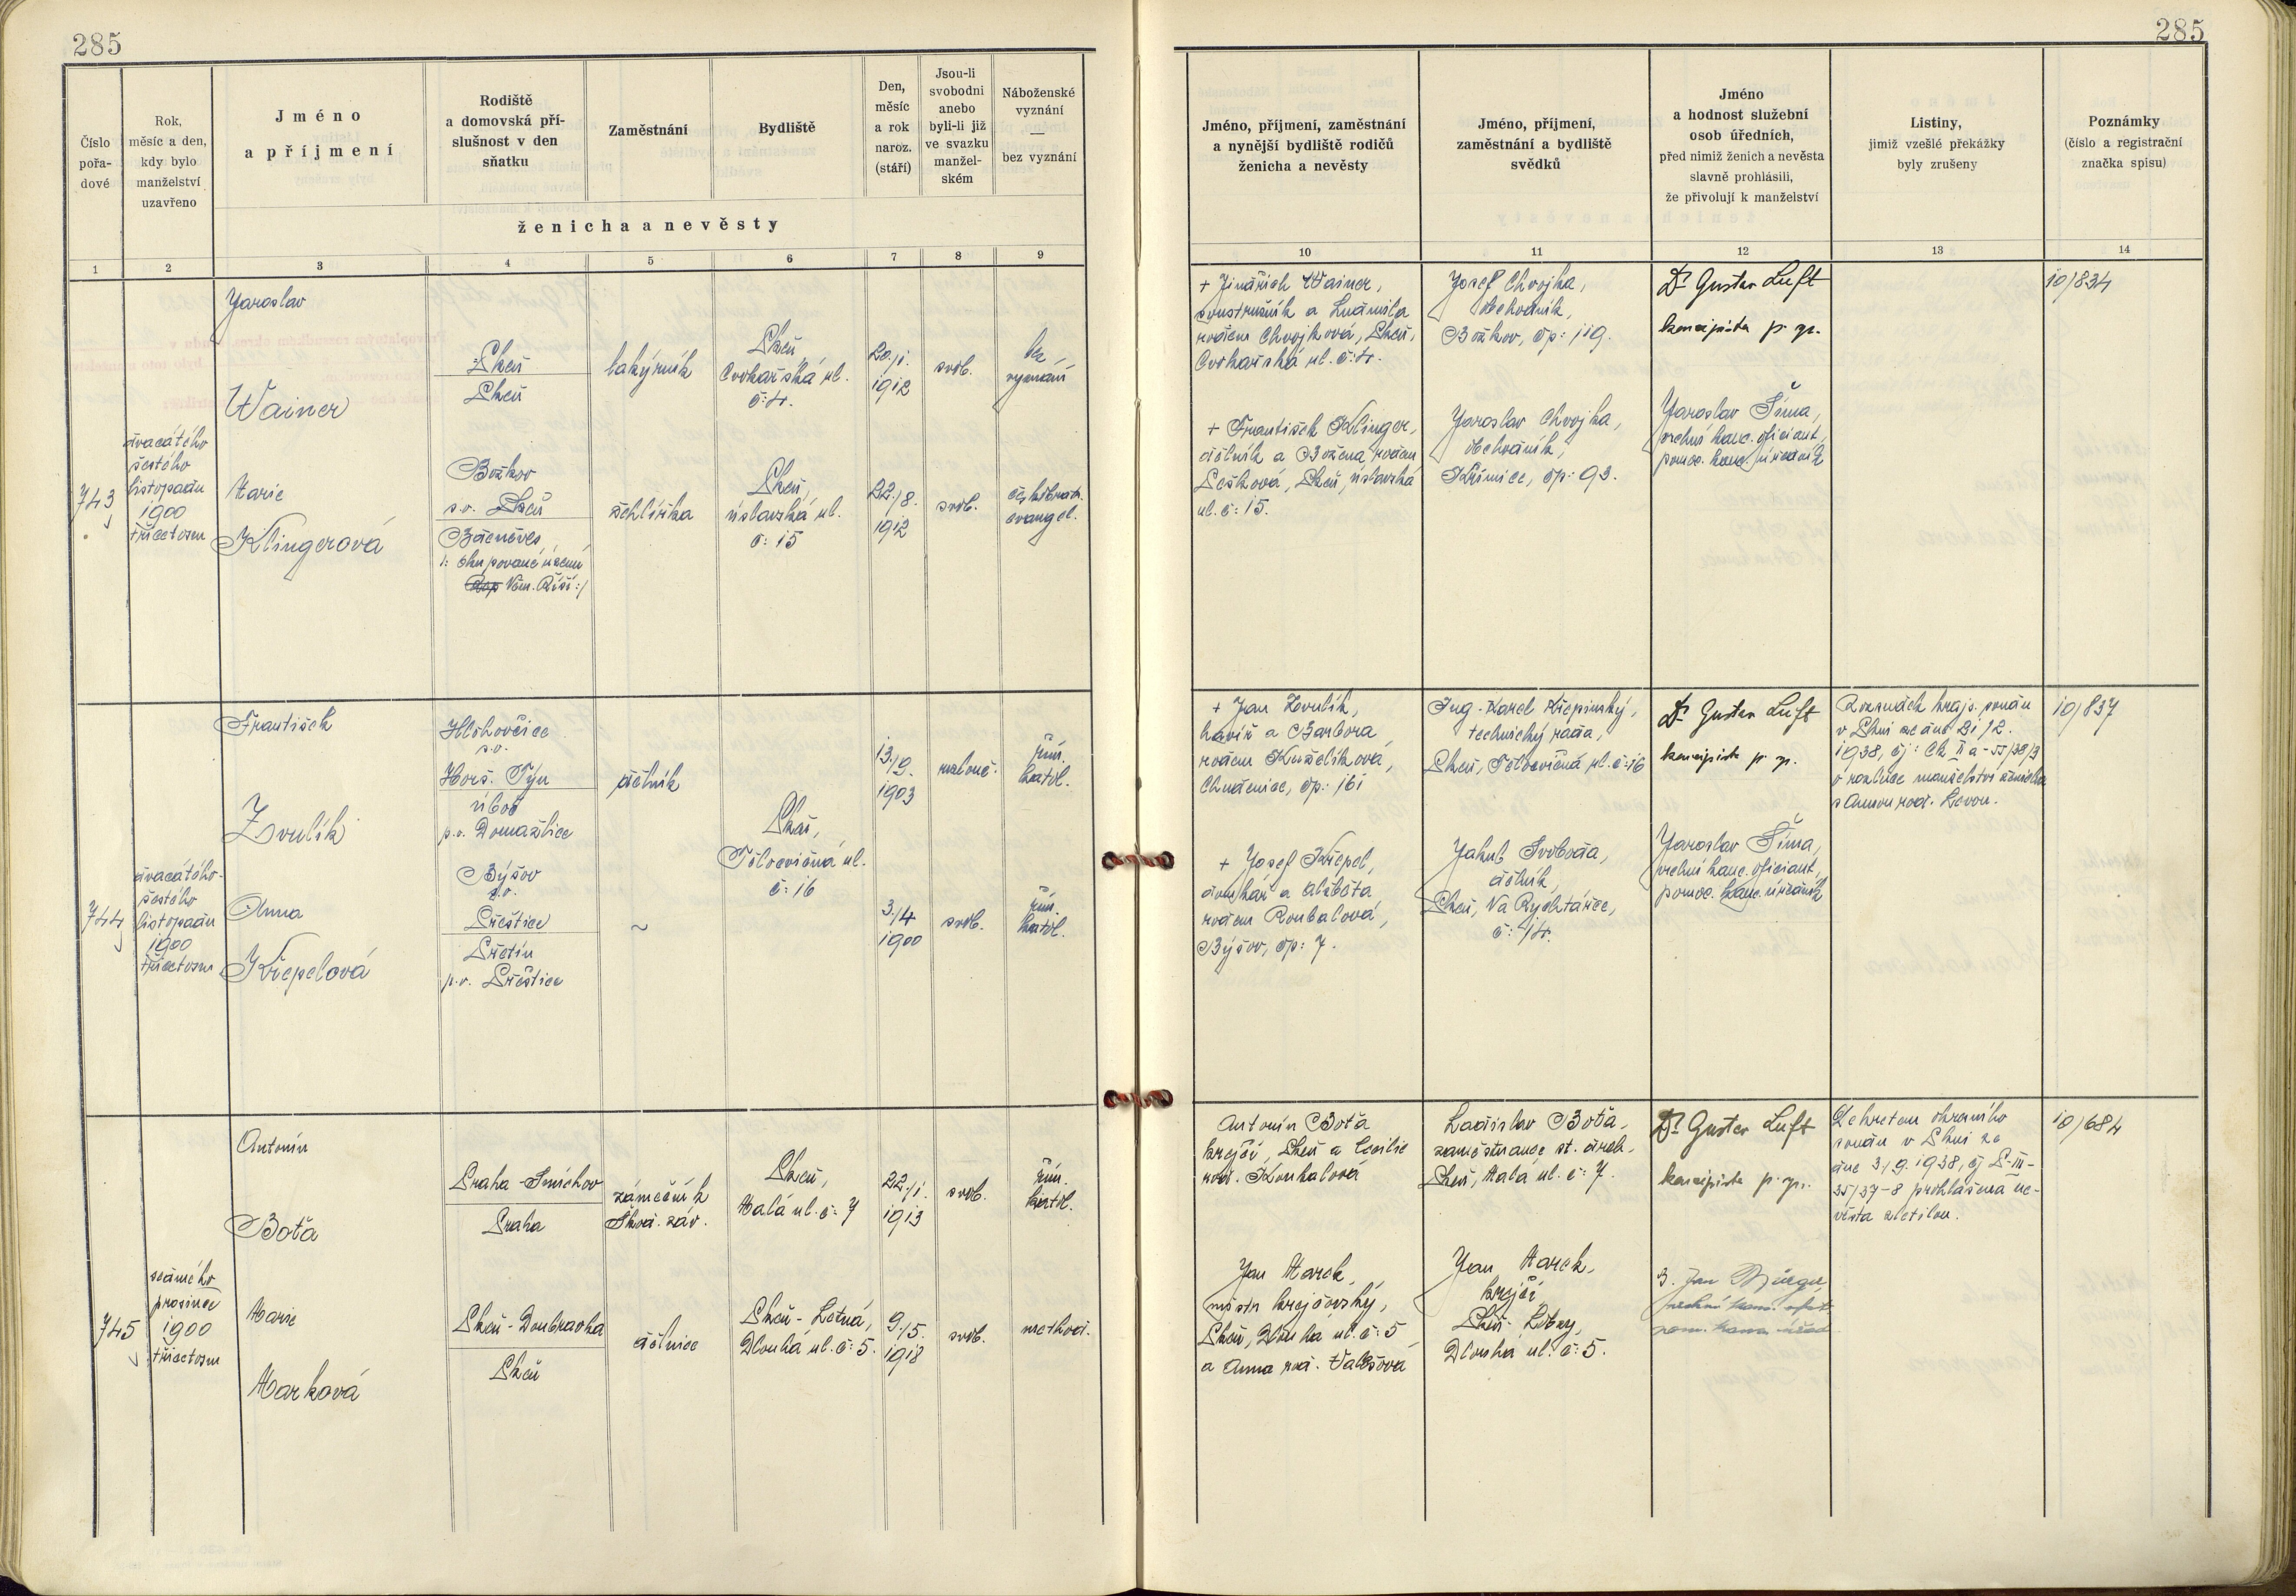 285
285
Číslo
pořa-
dové
Rok,
měsíc a den,
kdy bylo
manželství
uzavřeno
Jméno
a příjmení
Rodiště
a domovská pří-
slušnost v den
sňatku
Zaměstnání
Bydliště
Den,
měsíc
a rok
naroz.
(stáří)
Jsou-li
svobodni
anebo
byli-li již
ve svazku
manžel-
ském
Náboženské
vyznání
—
bez vyznání
ženicha a nevěsty
1 2 3 4 5 6 7 8 9
Jméno, příjmení, zaměstnání
a nynější bydliště rodičů
ženicha a nevěsty
Jméno, příjmení,
zaměstnání a bydliště
svědků
Jméno
a hodnost služební
osob úředních,
před nimiž ženich a nevěsta
slavně prohlásili,
že přivolují k manželství
Listiny,
jimiž vzešlé překážky
byly zrušeny
Poznámky
(číslo a registrační
značka spisu)
10 11 12 13 14
743
dvacátého
šestého
listopadu
1900
třicetosm
Jaroslav
Wainer
Marie
Klingerová
Plzeň
Plzeň
Božkov
p.o. Plzeň
Zděněves
/: okupované území
Něm. Říší :/
lakýrník
žehlířka
Plzeň
Cvokařská ul.
č: 4.
Plzeň,
úslavská ul.
č: 15
20./1.
1912
22./8.
1912
svob.
svob.
bez
vyznání
česk.bratr.
evangel.
+ Jindřich Wainer,
soustružník a Ludmila
rozem Chvojková, Plzeň,
Cvokařská ul. č: 4.
+ František Klinger,
dělník a Božena rozem
Pešková, Plzeň, úslavská
ul. č: 15.
Josef Chvojka,
obchodník,
Božkov, čp: 119.
Jaroslav Chvojka,
obchodník,
Křimice, čp: 93.
Dr Gustav Luft
koncipista p. zn.
Jaroslav Šíma,
vrchní kanc. oficiant,
pomoc. kanc. úředník
10/834
744
dvacátého-
šestého
listopadu
1900
třicetosm
František
Zvulík
Anna
Křepelová
Hlohovčice
p.o.
Horš. Týn
úboč
p.o. Domažlice
Býšov
p.o.
Přeštice
Přetín
p.o. Přeštice
dělník
~
Plzeň,
Tělocvičná ul.
č: 16
13./9.
1903
3./4
1900
rozlouč.
svob.
řím.
katol.
řím.
katol.
+ Jan Zvulík,
havíř a Barbora
rozem Kuželíková,
Chudenice, čp: 161
+ Josef Křepel,
domkář a Alžběta
rozem Roubalová,
Býšov, čp: 7.
Ing. Karel Křepinský,
technický rada,
Plzeň, Tělocvičná ul. č: 16
Jakub Svoboda,
dělník,
Plzeň, Na Rychtářce,
č: 14.
Dr Gustav Luft
koncipista p. zn.
Jaroslav Šíma,
vrchní kanc. oficiant,
pomoc. kanc. úředník
Rozsudek krajs. soudu
v Plzni ze dne 21/12.
1938, čj: Ck II a-55/38/3
o rozluce manželství ženicha
s Annou roz.
10/837
745
sedmého
prosince
1900
třicetosm
Antonín
Boťa
Marie
Marková
Praha-Smíchov
Praha
Plzeň-Doubravka
Plzeň
zámečník
Škod. záv.
dělnice
Plzeň,
Malá ul. č: 7
Plzeň-Letná,
Dlouhá ul. č: 5.
22./1.
1913
9./5.
1918
svob.
svob.
řím.
katol.
method.
Antonín Boťa
krejčí, Plzeň a Cecilie
roz. Kouhalová
Jan Marek,
mistr krejčovský,
Plzeň, Dlouhá ul. č: 5
a Anna roz. Valešová
Ladislav Boťa,
zaměstnanec st. drah.
Plzeň, Malá ul. č: 7.
Jan Marek,
krejčí
Plzeň-
Dlouhá ul. č: 5.
Dr Gustav Luft
koncipista p. zn.
Jan
Dekretem okresního
soudu v Plzni ze
dne 3./9. 1938, čj P-III-
35/37-8 prohlášena ne-
věsta zletilou.
10/684